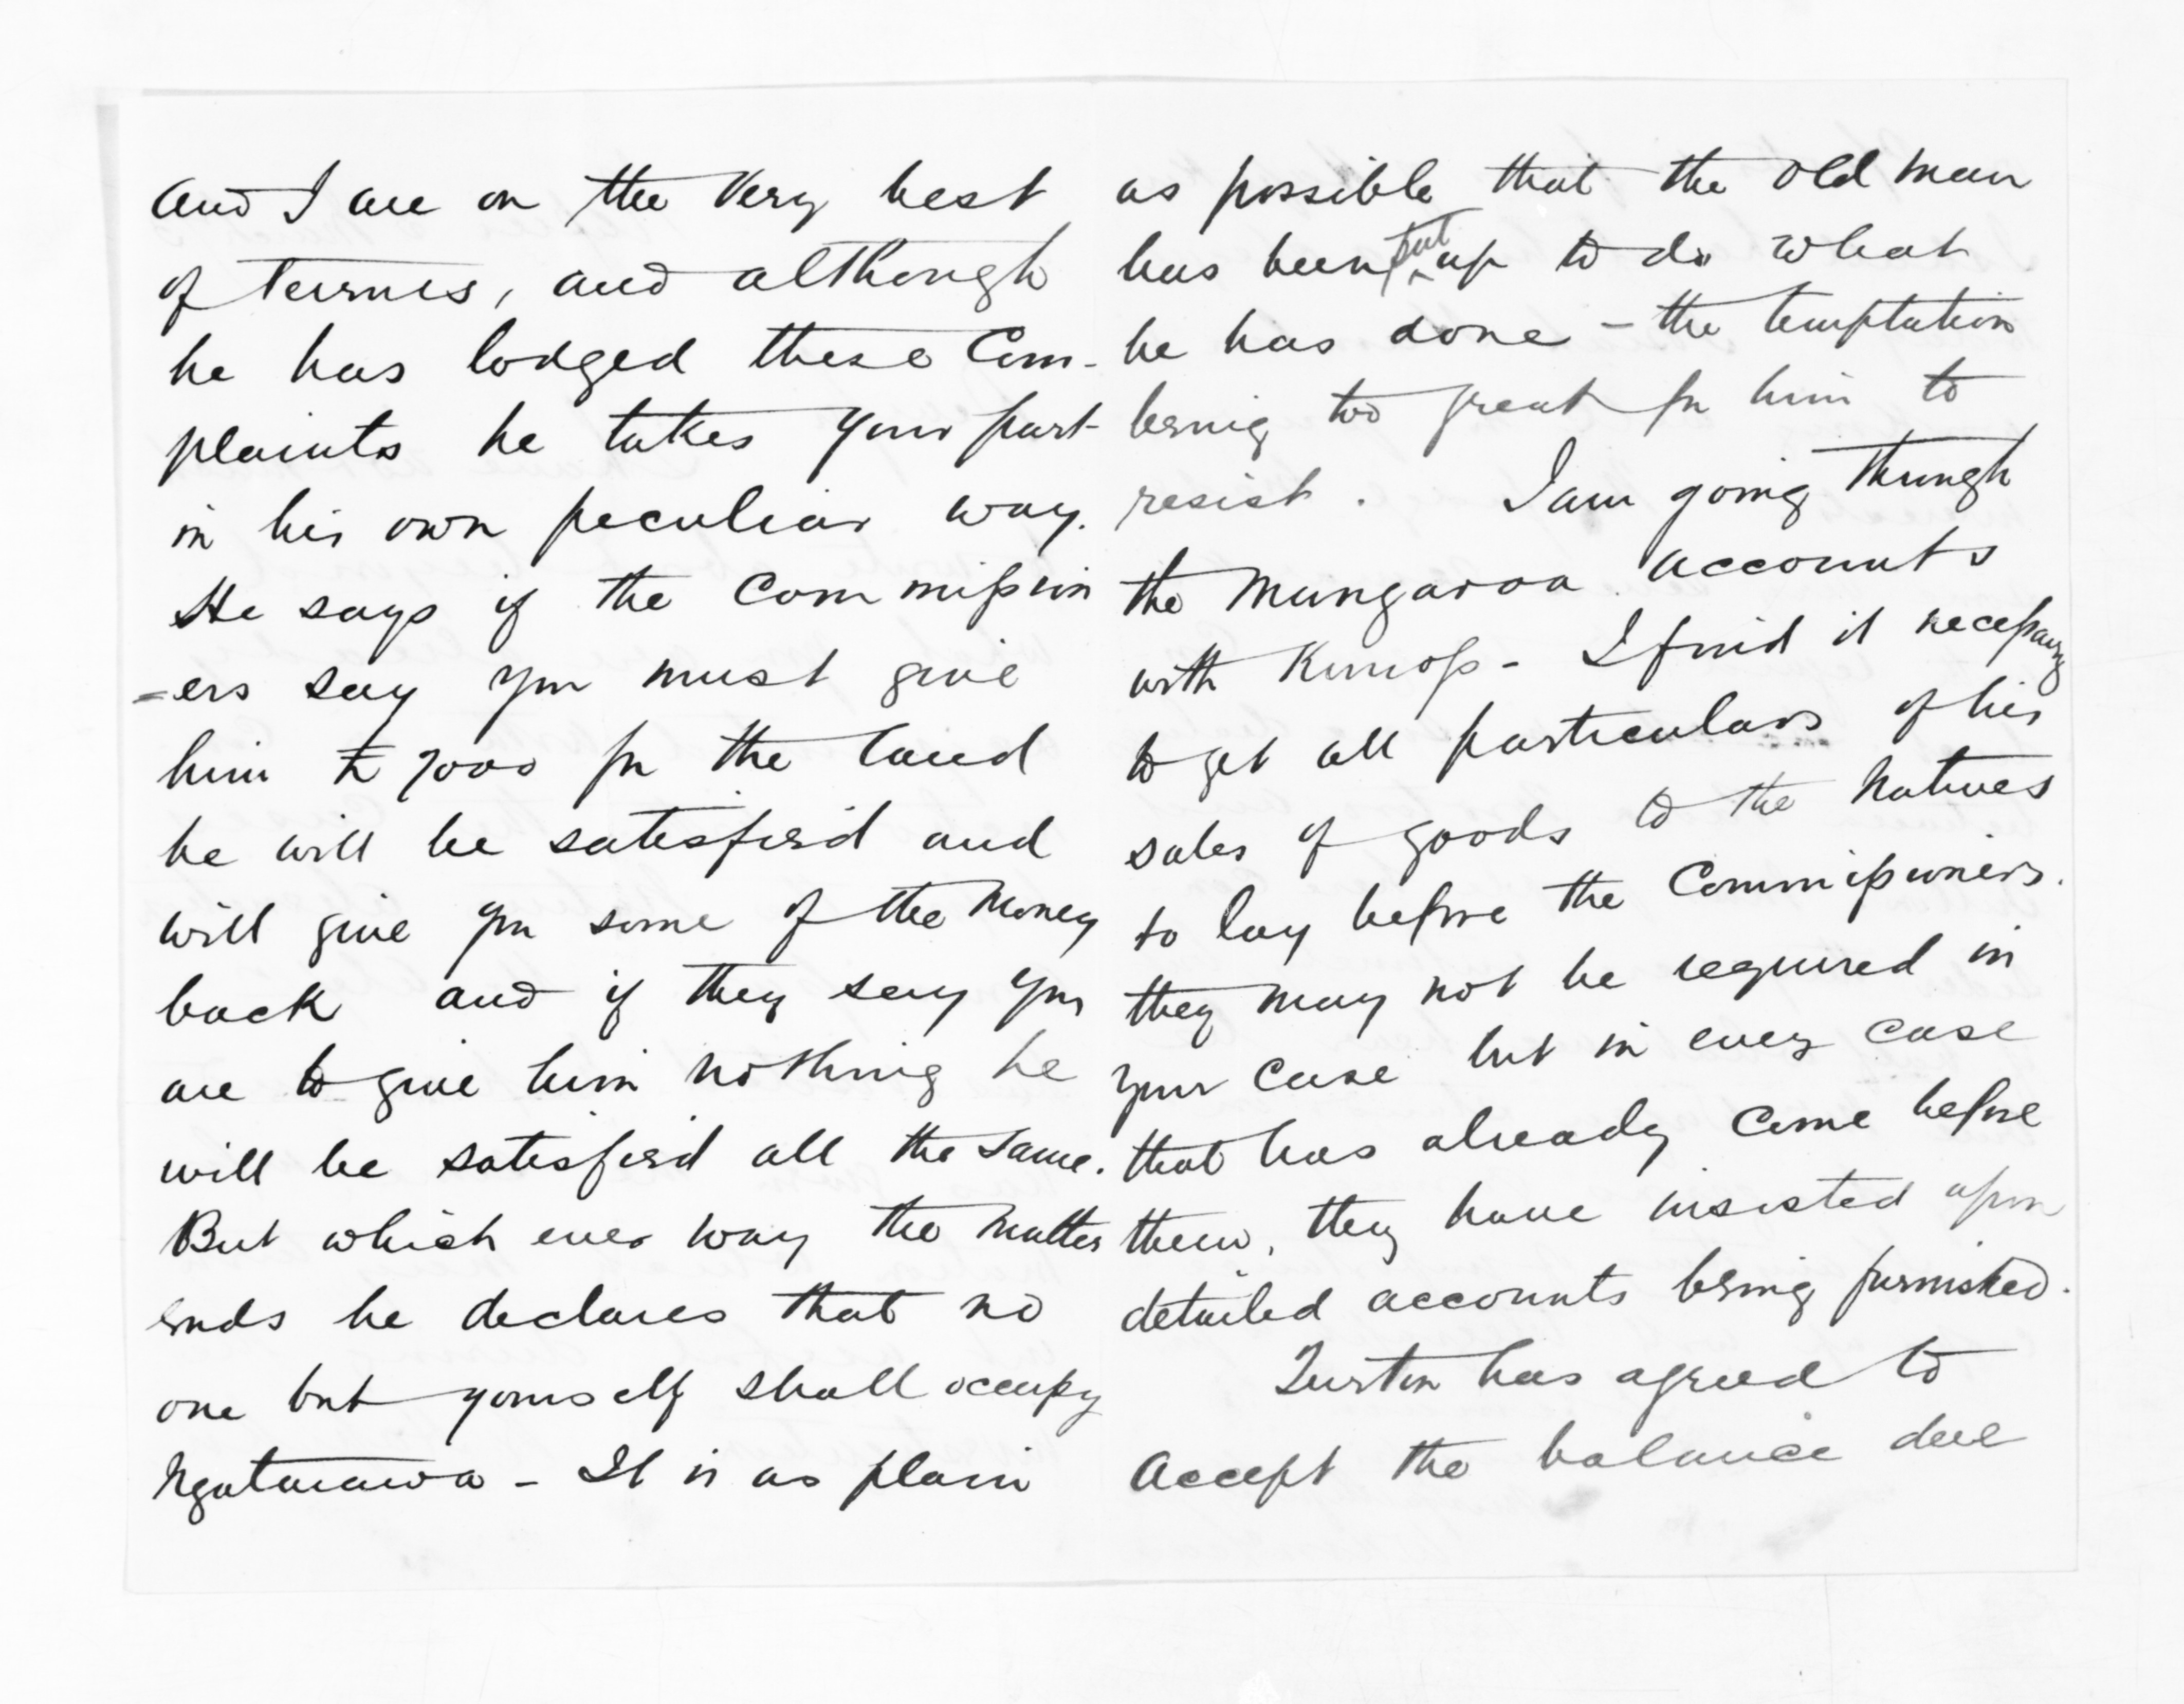 and I are on the very best
of terms, and although
he has lodged these Com-
plaints he takes your part
in his own peculiar way.
He says if the Commission
=ers say you must give
him £7000 for the land
he will be satisfied and
will give you some of the money
back and if they say you
are to give him nothing he
will be satisfied all the same.
But which ever way the matter
ends he declares that no
one but yourself shall occupy
Ngatarawa - It is as plain
as possible that the old man
has been put up to do what
he has done - the temptation
being too great for him to
resist. I am going through
the Mangaroa accounts
with Kinross - I find it necessary
to get all particulars of his
sales of goods to the Natives
to lay before the Commissioners.
they may not be required in
your case but in every case
that has already come before
them, they have insisted upon
detailed accounts being furnished.
Turton has agreed to
accept the balance due